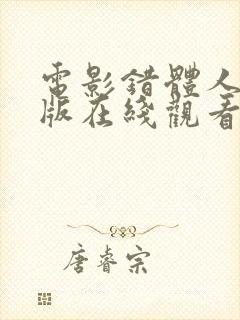 電影錯體人
版在綫觀看
唐睿宗